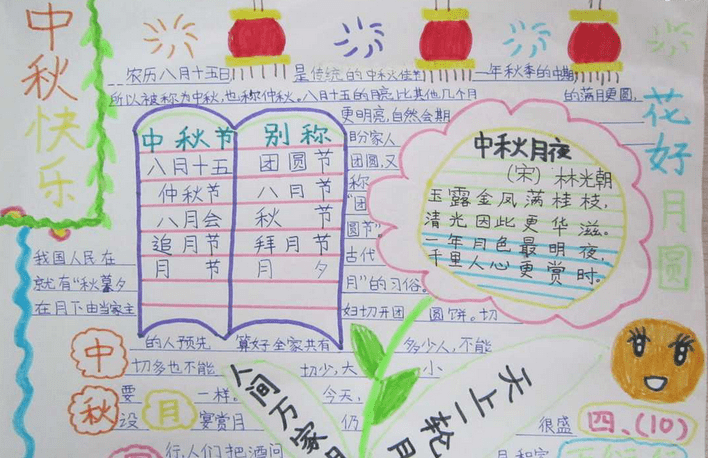 中秋快乐
农历八月十五日 是传统的中秋佳节 一年秋季的中期
所以被称为中秋,也称仲秋。八月十五的月亮比其他几个月 的满月更圆,
更明亮,自然会期
盼家人
团圆,又
称
"团
圆节"
古代
月"的习俗。
花好月圆
中秋节 别称
八月十五 团圆节
仲秋节 八月节
八月会 秋节
追月节 拜月节
月节 月夕
中秋月夜
(宋) 林光朝
玉露金风满桂枝,
清光因此更华滋。
一年月色最明夜,
千里人心更赏时。
我国人民在
就有"秋暮夕
在月下由当家主 妇切开团 圆饼。切
的人预先 算好全家共有 多少人,不能
切多也不能 切少,大 小
要 一样。 今天,
设 宴赏月 仍 很盛
行,人们把酒问
中秋月
人间万家
天上一轮月
四、(10)